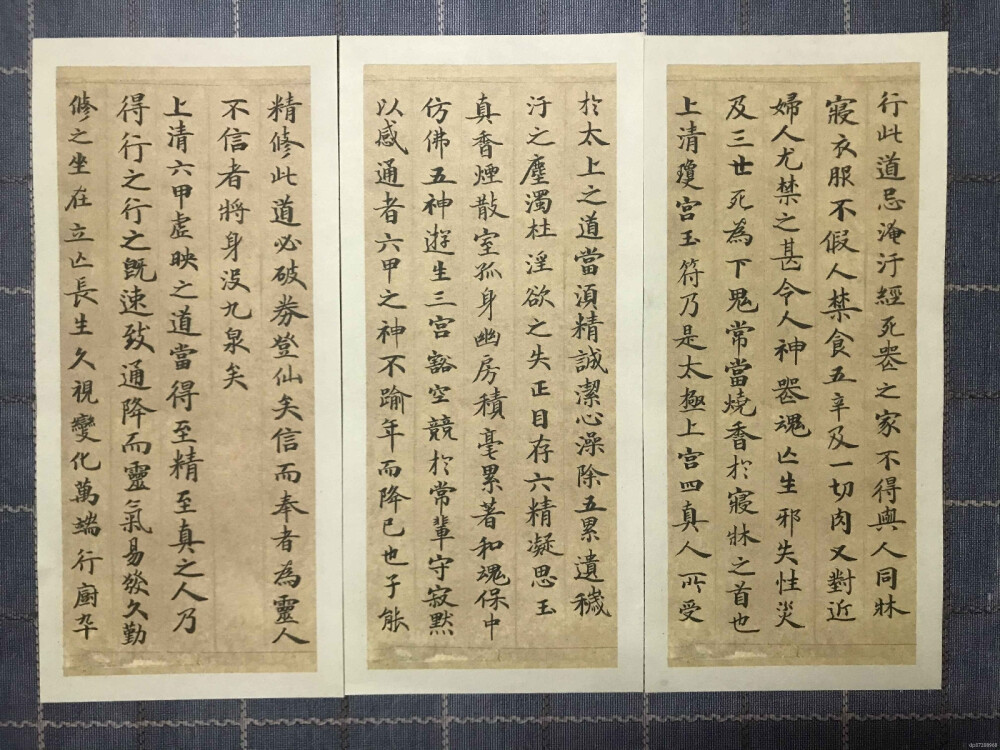 行此道忌淹汙經死喪之家不得與人同牀
寢衣服不假人禁食五辛及一切肉又對近
婦人尤禁之甚令人神喪魂亡生邪失性災
及三世死為下鬼常當燒香於寢牀之首也
上清瓊宮玉符乃是太極上宮四真人所受
於太上之道當湏精誠潔心澡除五累遺穢
汙之塵濁杜淫欲之失正目存六精凝思玉
真香煙散室孤身幽房積毫累著和魂保中
仿佛五神遊生三宮豁空競於常輩守寂默
以感通者六甲之神不踰年而降已也子能
精修此道必破券登仙矣信而奉者為靈人
不信者將身沒九泉矣
上清六甲虛映之道當得至精至真之人乃
得行之行之既速致通降而靈氣易發久勤
修之坐在立亡長生久視變化萬端行廚卒
dp67289968